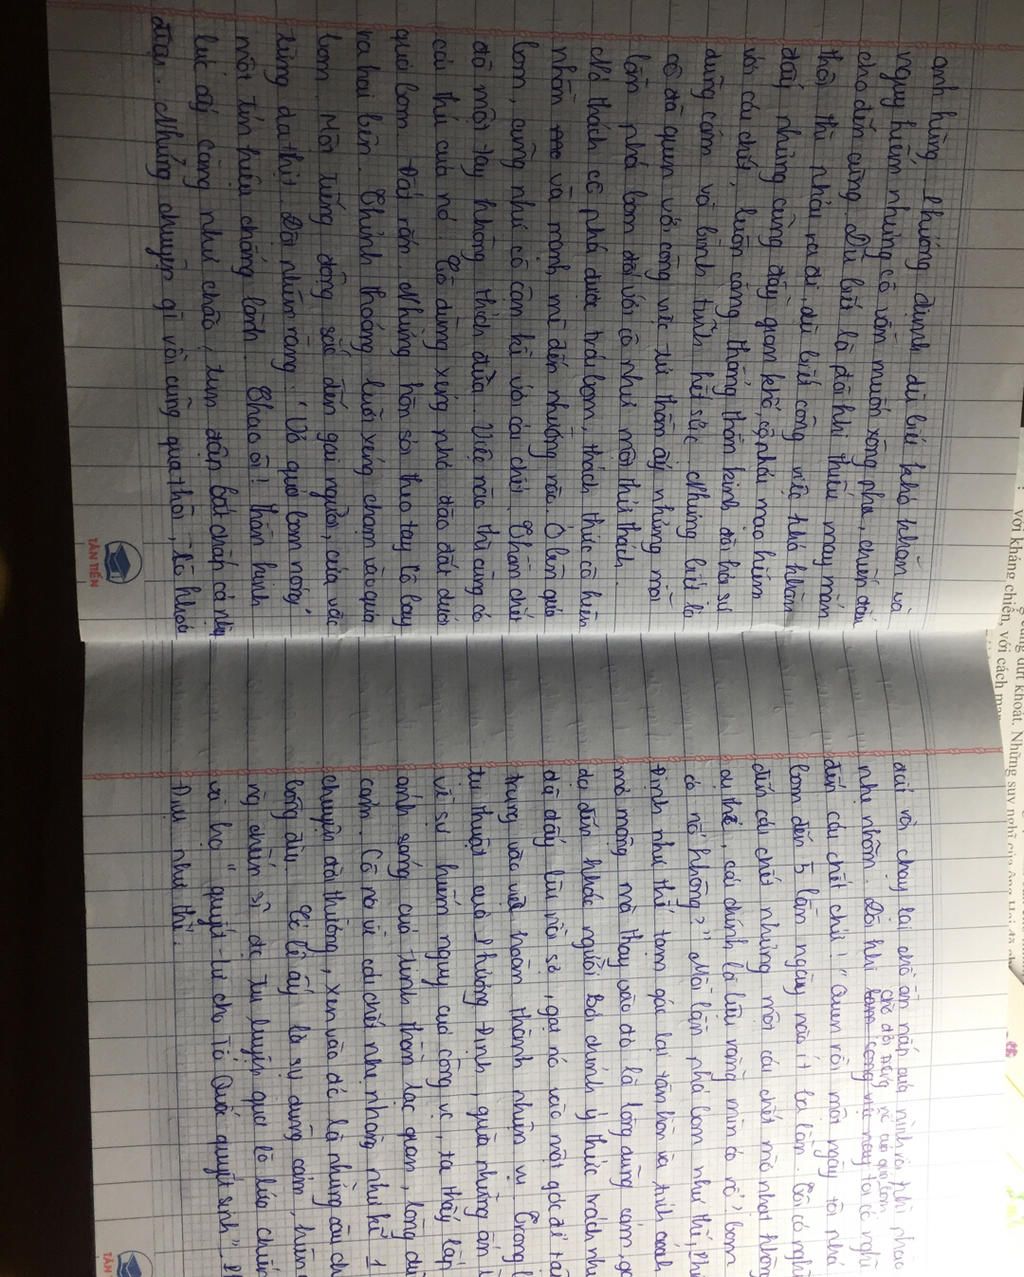 anh hùng. Phương Định dù biết khó khăn và
nguy hiểm nhưng cô vẫn muốn xông pha, chiến đấu
cho đến cùng. Dù biết là đôi khi thiếu may mắn
thôi thì phải ra đi, dù biết công việc khó khăn
đấy nhưng cũng đầy gian khổ, phải mạo hiểm
với cái chết, luôn căng thẳng thần kinh đòi hỏi sự
dũng cảm và bình tĩnh hết sức. Nhưng biết là
cô đã quen với công việc tử thần ấy nhưng mỗi
lần phá bom đối với cô như một thử thách.
Nó thách cô phá được trái bom, thách thức cô kiên
nhẫn và mạnh mẽ đến nhường nào. Ở bên quả
bom, cũng như cô cận kề với cái chết. Thần chết
đó một tay không thích đùa. Việc nào thì cũng có
cái thú của nó. Cô dùng xẻng nhỏ đào đất dưới
quả bom. Đất rắn. Những hòn sỏi theo tay cô bay
ra hai bên. Thỉnh thoảng lưỡi xẻng chạm vào quả
bom. Một tiếng động sắc đến gai người, cứa vào
từng da thịt. Rồi nhìn rằng: "Vỏ quả bom nóng"
một tín hiệu chẳng lành. Chao ôi! thần kinh
lúc ấy căng như chão, tim đập bất chấp cả nhịp
điệu. Những chuyện gì rồi cũng qua thôi, cô khoả
đất rồi chạy lại chỗ ẩn nấp của mình rồi
nhẹ nhõm. Đôi khi chờ đợi tiếng nổ của quả bom tôi có nghĩ
đến cái chết chứ! "Quen rồi một ngày tôi phá
bom đến 5 lần ngày nào ít ba lần. Tôi có nghĩ
đến cái chết nhưng một cái chết mờ nhạt không
cụ thể, cái chính là liệu rằng mìn có nổ, bom
có nổ không?" Mỗi lần phá bom như thế,
Định như thế tạm gác lại tâm hồn và tính cách
mơ mộng mà thay vào đó là lòng dũng cảm,
dự đến khác người. Bởi chính ý thức trách
đã đẩy lùi nỗi sợ, gạt nó vào một góc để
trung vào việc hoàn thành nhiệm vụ. Trong
tự thuật của Phương Định, giữa những
về sự hiểm nguy của công việc, ta thấy lấp
ánh sáng của tinh thần lạc quan, lòng
cảm. Cô nói về cái chết nhẹ nhàng như kể 1
chuyện đời thường, xen vào đó là những câu
bông đùa. Có lẽ ấy là sự dũng cảm,
chiến sĩ được tu luyện qua lò lửa chiến
và họ "quyết tử cho Tổ Quốc quyết sinh".
Định như thế.
TÂN TIẾN
TÂN
cùng dứt khoát. Những suy nghĩ của ông Hai đã
với kháng chiến, với cách mạng